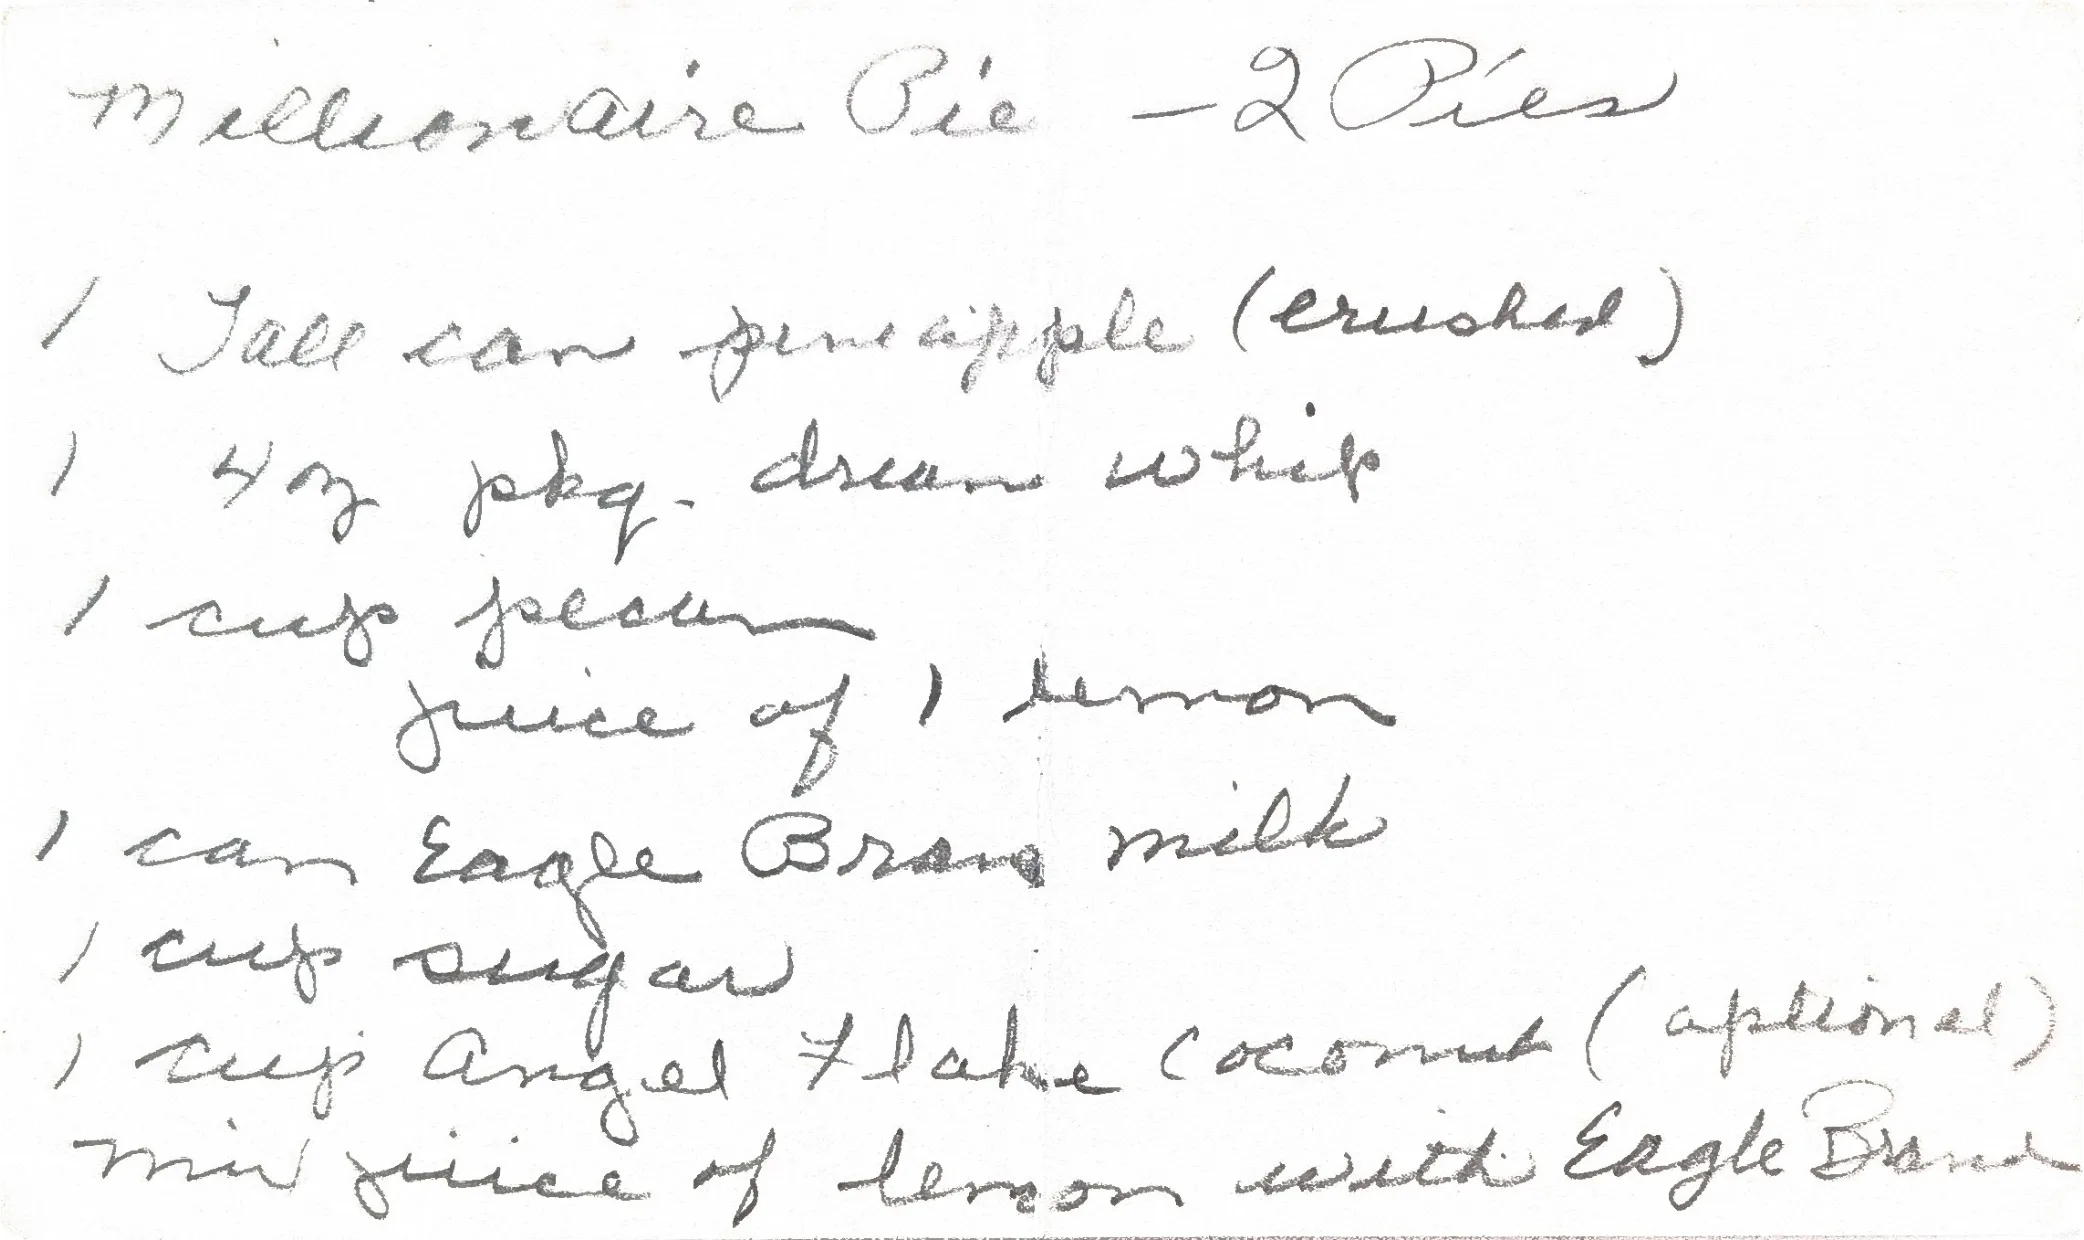 Millionaire Pie - 2 Pies
1 Tall can pineapple (crushed)
1 4 oz pkg. dream whip
1 cup pecan
juice of 1 lemon
1 can Eagle Brand milk
1 cup sugar
1 cup Angel Flake Coconut (optional)
Mix juice of lemon with Eagle Brand